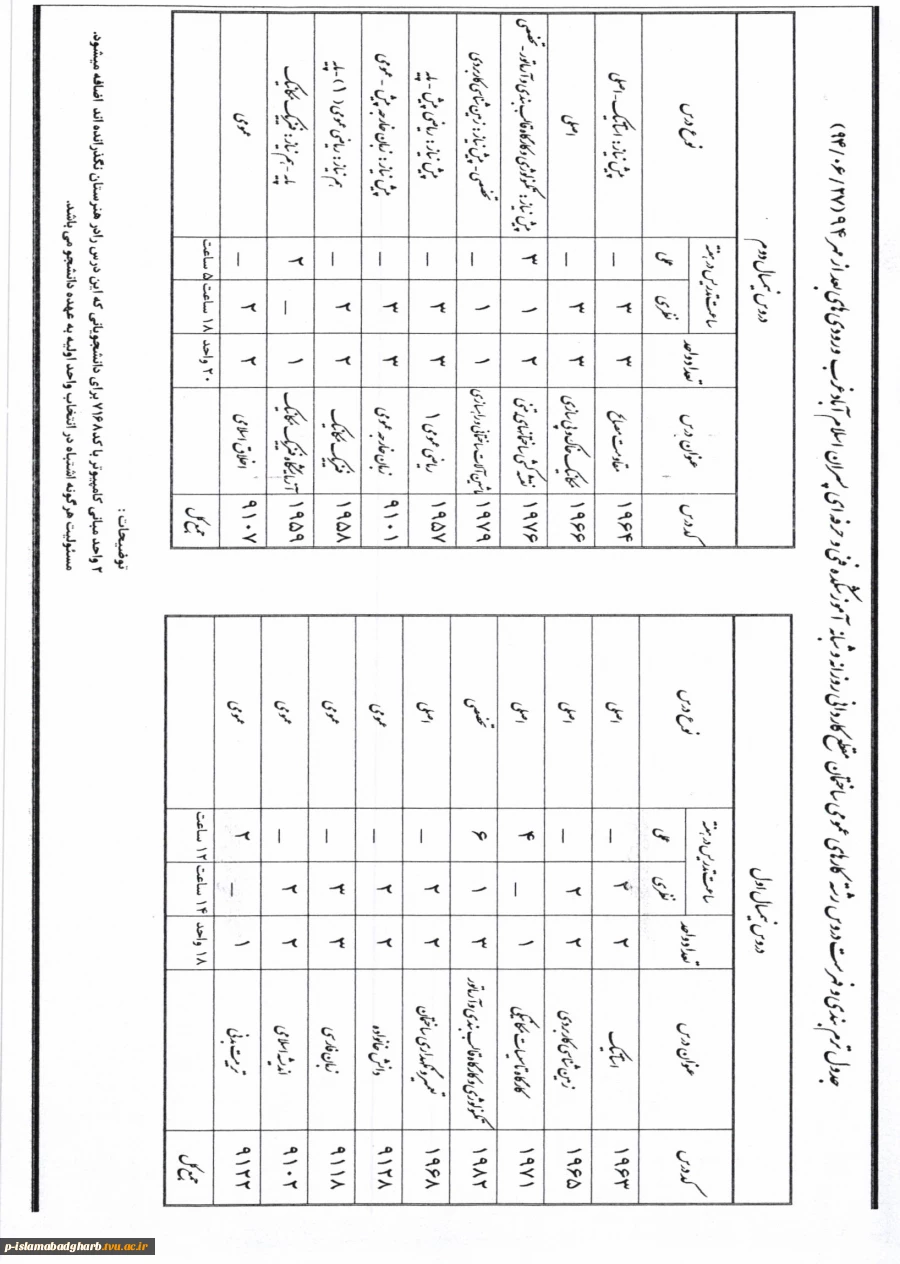 جدول ترم بندی و فهرست دروس رشته کارهای عمومی ساختمان مقطع کاردانی روزانه و شبانه آموزشکده فنی و حرفه ای پسران اسلام آبادغرب ورودی های بعد از مهر ۹۴ (۹۴/۰۶/۲۷)
دروس نیمسال اول
کد درس عنوان درس تعداد واحد ساعت تدریس در هفته نوع درس
نظری عملی
۱۹۶۳ استاتیک ۲ ۳ – اصلی
۱۹۶۵ زمین شناسی کاربردی ۲ ۲ – اصلی
۱۹۷۱ کارگاه تاسیسات مکانیکی ۱ – ۴ اصلی
۱۹۸۲ تکنولوژی و کارگاه قالب بندی و آرماتور ۳ ۱ ۶ تخصصی
۱۹۶۸ تعمیر و نگهداری ساختمان ۲ ۲ – اصلی
۹۱۲۸ دانش خانواده ۲ ۲ – عمومی
۹۱۱۸ زبان فارسی ۳ ۳ – عمومی
۹۱۰۲ اندیشه اسلامی ۲ ۲ – عمومی
۹۱۲۲ تربیت بدنی ۱ – ۲ عمومی
جمع کل ۱۸ واحد ۱۴ ساعت ۱۲ ساعت
دروس نیمسال دوم
کد درس عنوان درس تعداد واحد ساعت تدریس در هفته نوع درس
نظری عملی
۱۹۶۴ مقاومت مصالح ۳ ۳ – پیش نیاز: استاتیک - اصلی
۱۹۶۶ مکانیک خاک و پی سازی ۳ ۳ – اصلی
۱۹۷۶ نقشه کشی ساختمانهای بتنی ۲ ۱ ۳ پیش نیاز: تکنولوژی و کارگاه قالب بندی و آرماتور - تخصصی
۱۹۷۹ ماشین آلات ساختمانی و راهسازی ۱ ۱ – تخصصی - پیش نیاز: زمین شناسی کاربردی
۱۹۵۷ ریاضی عمومی ۱ ۳ ۳ – پیش نیاز: ریاضی پیش - پایه
۹۱۰۱ زبان خارجه عمومی ۳ ۳ – پیش نیاز: زبان خارجه پیش - عمومی
۱۹۵۸ فیزیک مکانیک ۲ ۲ – هم نیاز: ریاضی عمومی (۱) - پایه
۱۹۵۹ آزمایشگاه فیزیک مکانیک ۱ – ۲ پایه - هم نیاز: فیزیک مکانیک
۹۱۰۷ اخلاق اسلامی ۲ ۲ – عمومی
جمع کل ۲۰ واحد ۱۸ ساعت ۵ ساعت
توضیحات :
۲ واحد مبانی کامپیوتر با کد ۷۱۶۸ برای دانشجویانی که این درس را در هنرستان نگذرانده اند اضافه میشود.
مسئولیت هرگونه اشتباه در انتخاب واحد اولیه به عهده دانشجو می باشد.
p-islamabadgharb.tvu.ac.ir